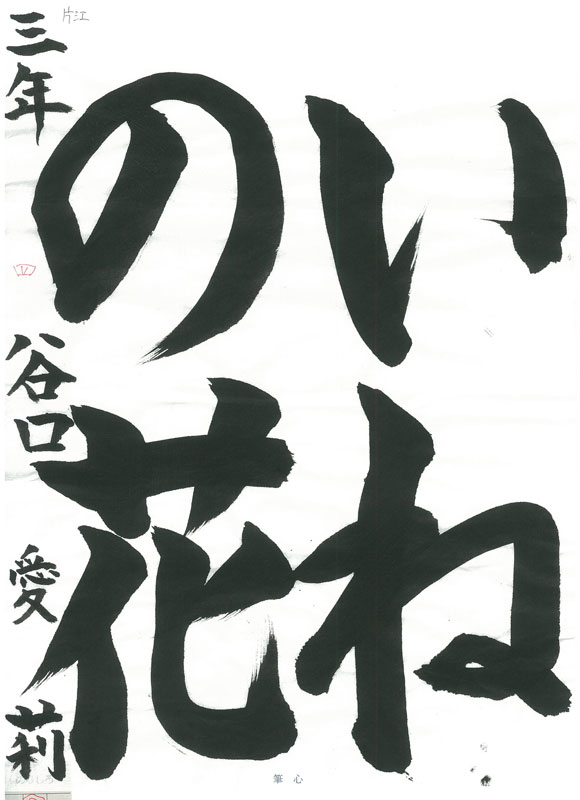 いね
の花
三年 谷口 愛莉
片江
筆心